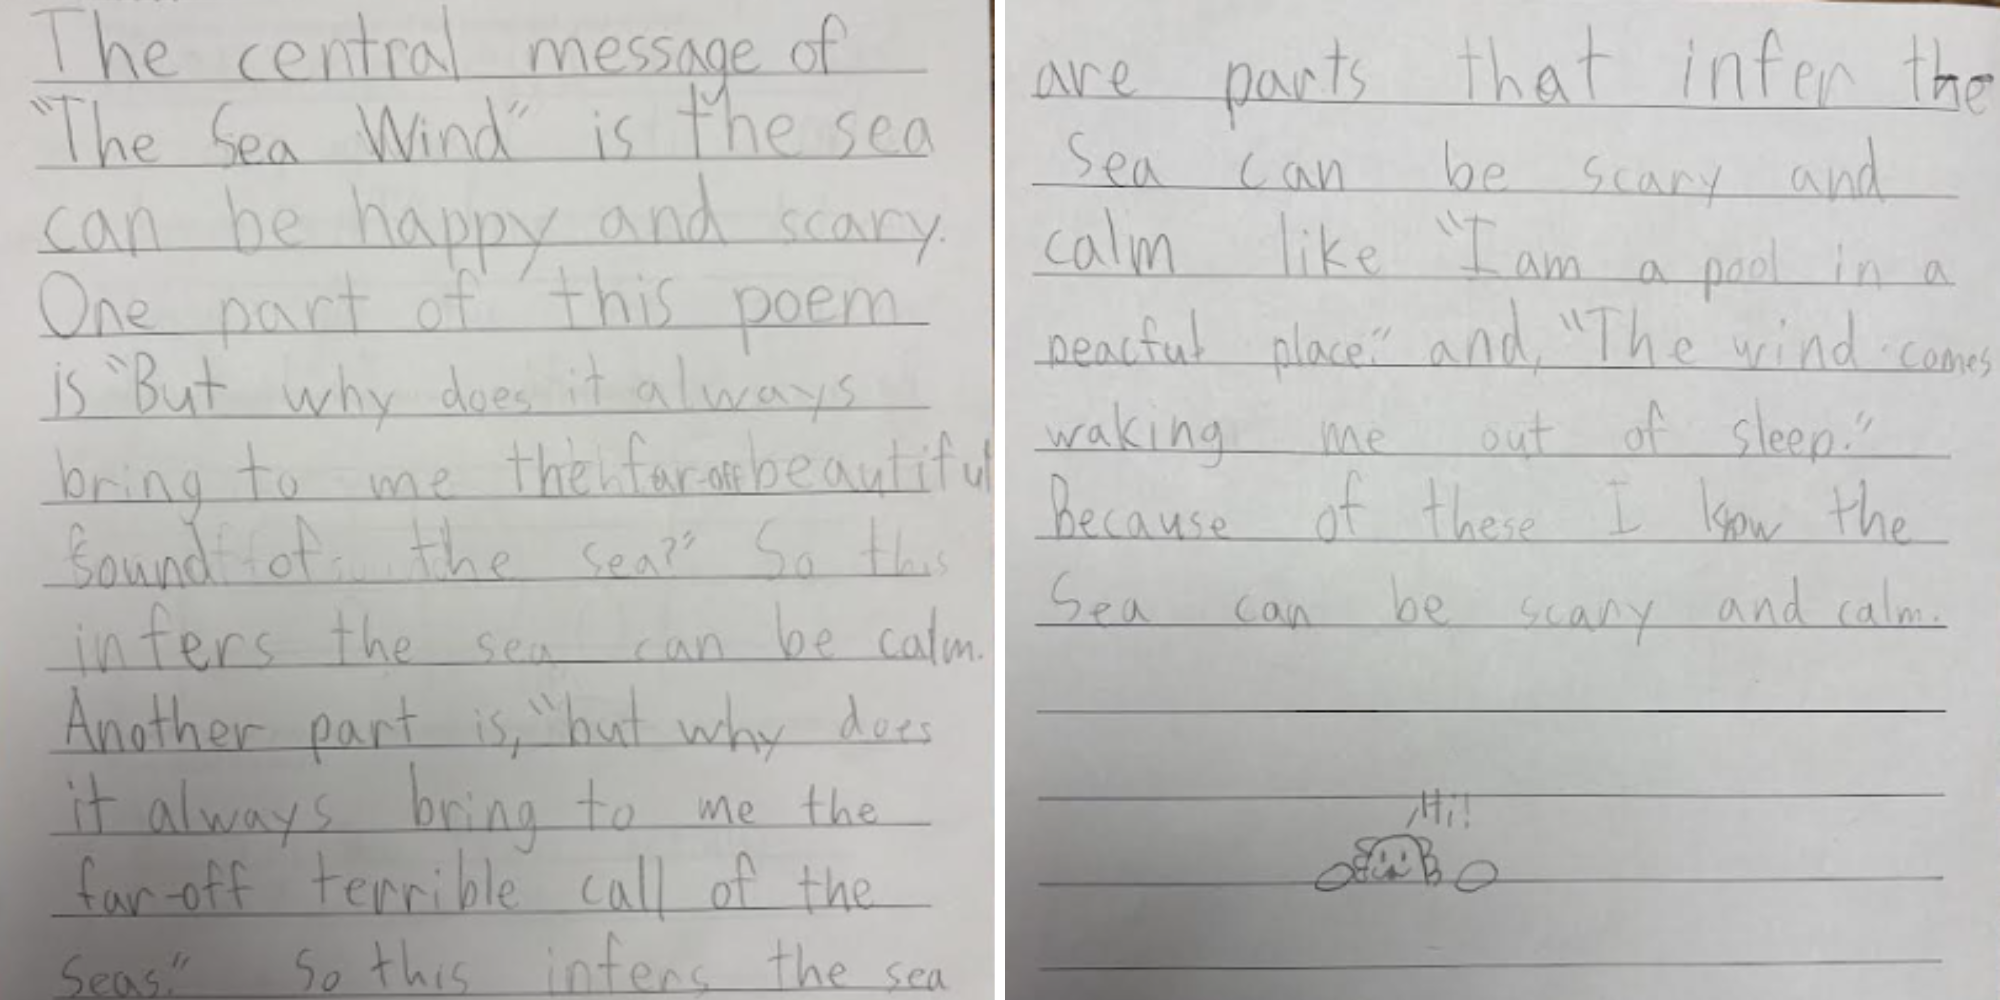 The central message of
"The Sea Wind" is the sea
can be happy and scary.
One part of this poem
is "But why does it always
bring to me the far-off beautiful
sound of the sea?" So this
infers the sea can be calm.
Another part is, "but why does
it always bring to me the
far-off terrible call of the
seas." So this infers the sea
are parts that infer the
sea can be scary and
calm like "I am a pool in a
peacful place." and, "The wind comes
waking me out of sleep."
Because of these I know the
Sea can be scary and calm.
Hi!